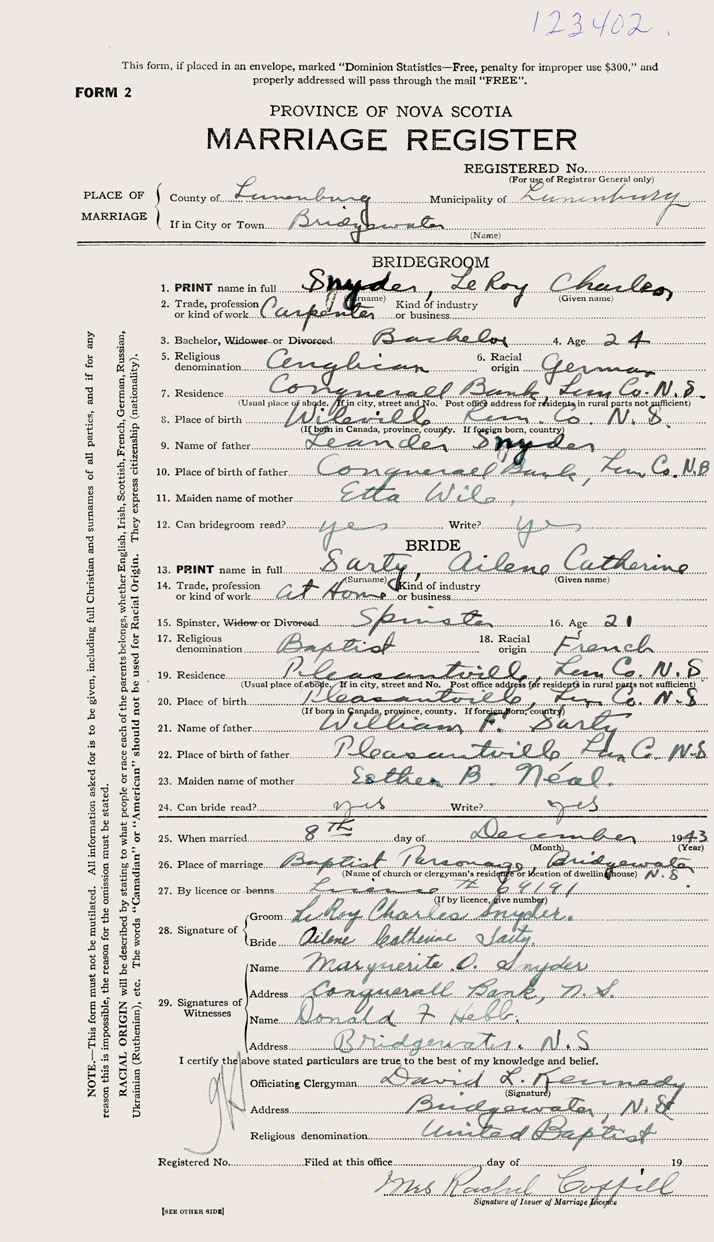 123402.
This form, if placed in an envelope, marked "Dominion Statistics—Free, penalty for improper use $300," and
properly addressed will pass through the mail "FREE".
FORM 2
PROVINCE OF NOVA SCOTIA
MARRIAGE REGISTER
REGISTERED No.
(For use of Registrar General only)
PLACE OF MARRIAGE
County of Lunenburg Municipality of Lunenburg
If in City or Town Bridgewater
(Name)
BRIDEGROOM
1. PRINT name in full Snyder, LeRoy Charles
(Surname) (Given name)
2. Trade, profession or kind of work Carpenter Kind of industry or business
3. Bachelor, Widower or Divorced Bachelor 4. Age 24
5. Religious denomination Anglican 6. Racial origin German
7. Residence Conquerall Bank, Lun Co. N.S.
(Usual place of abode. If in city, street and No. Post office address for residents in rural parts not sufficient)
8. Place of birth Wileville Lun. Co. N.S.
(If born in Canada, province, county. If foreign born, country)
9. Name of father Leander Snyder
10. Place of birth of father Conquerall Bank, Lun Co. N.B
11. Maiden name of mother Etta Wile,
12. Can bridegroom read? yes Write? yes
BRIDE
13. PRINT name in full Sarty, Ailene Catherine
(Surname) (Given name)
14. Trade, profession or kind of work at Home Kind of industry or business
15. Spinster, Widow or Divorced Spinster 16. Age 21
17. Religious denomination Baptist 18. Racial origin French
19. Residence Pleasantville, Lun Co. N.S
(Usual place of abode. If in city, street and No. Post office address for residents in rural parts not sufficient)
20. Place of birth Pleasantville, Lun Co. N.S
(If born in Canada, province, county. If foreign born, country)
21. Name of father William F. Sarty
22. Place of birth of father Pleasantville Lun C. N.S
23. Maiden name of mother Esther B. Neal.
24. Can bride read? yes Write? yes
25. When married 8TH day of December 1943
(Month) (Year)
26. Place of marriage Baptist Parsonage, Bridgewater N.S
(Name of church or clergyman's residence or location of dwelling house)
27. By licence or banns License # 69191
(If by licence, give number)
28. Signature of
Groom LeRoy Charles Snyder.
Bride Ailene Catherine Sarty.
29. Signatures of Witnesses
Name Marguerite O. Snyder
Address Conquerall Bank, N.S.
Name Donald F Hebb.
Address Bridgewater. N.S
I certify the above stated particulars are true to the best of my knowledge and belief.
Officiating Clergyman David L. Kennedy
(Signature)
Address Bridgewater, N.S.
Religious denomination United Baptist
Registered No. Filed at this office day of 19
Mrs Rachel Coffill
Signature of Issuer of Marriage Licence
[SEE OTHER SIDE]
NOTE.—This form must not be mutilated. All information asked for is to be given, including full Christian and surnames of all parties, and if for any
reason this is impossible, the reason for the omission must be stated.
RACIAL ORIGIN will be described by stating to what people or race each of the parents belongs, whether English, Irish, Scottish, French, German, Russian,
Ukrainian (Ruthenian), etc. The words "Canadian" or "American" should not be used for Racial Origin. They express citizenship (nationality).